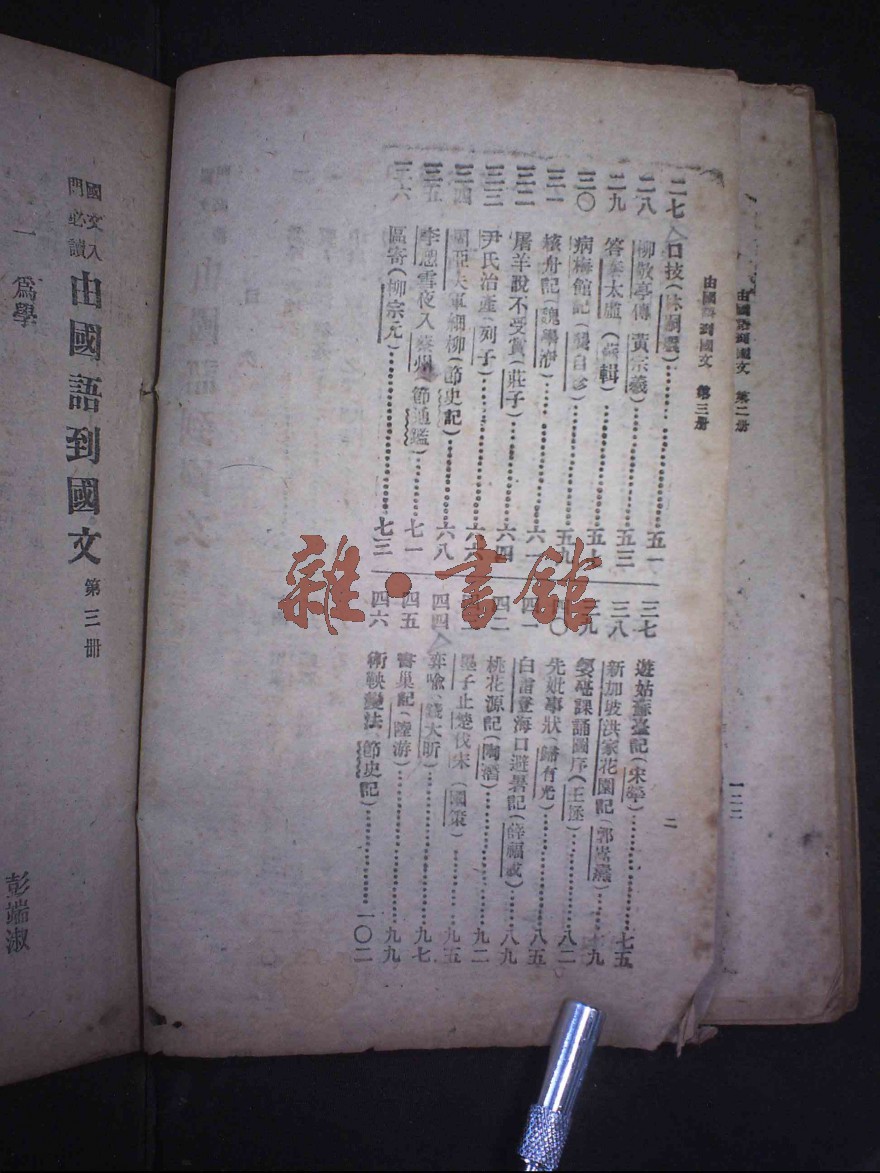 由國語到國文 第二册
一二二
由國語到國文 第三册
二
二七 口技(林嗣環)………五一
二八 柳敬亭傳(黃宗羲)………五三
二九 答秦太虛(蘇)………五七
三〇 病梅館記(龔自珍)………五九
三一 核舟記(魏學洢)………六一
三二 屠羊說不受賞(莊子)………六四
三三 尹氏治產(列子)………六六
三四 周亞夫軍細柳(節史記)………六八
三五 李愬雪夜入蔡州(節通鑑)………七一
三六 區寄(柳宗元)………七三
三七 遊姑蘇臺記(宋犖)………七五
三八 新加坡洪家花園記(郭嵩燾)………七九
三九 課誦圖序(王拯)………八二
四〇 先妣事狀(歸有光)………八五
四一 白雷登海口避暑記(薛福成)………八九
四二 桃花源記(陶潛)………九二
四三 墨子止楚伐宋(國策)………九五
四四 弈喻(錢大昕)………九七
四五 書巢記(陸游)………九九
四六 衞鞅變法(節史記)………一〇二
國文入
門必讀
由國語到國文 第三冊
一 爲學
彭端淑
雜·書館